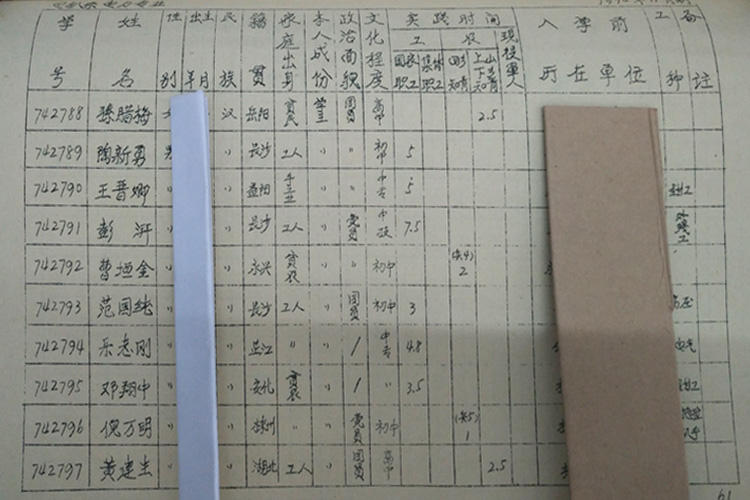 学号 姓名 性别 出生年月 民族 籍贯 家庭出身 本人成份 政治面貌 文化程度 实践时间 入学前所在单位 工种 备注
工 农 现役军人
国家职工 集体职工 回乡知青 上山下乡知青
742788 腊梅 汉 岳阳 贫民 学生 团员 高中 2.5
742789 陶新勇 男 〃 长沙 工人 〃 〃 初中 5
742790 王晋卿 〃 〃 益阳 〃 〃 中专 5 钳工
742791 彭 〃 〃 长沙 工人 〃 党员 中技 7.5 外线工
742792 曹垣金 〃 〃 永兴 贫农 〃 〃 初中 2
742793 范国纯 〃 〃 长沙 工人 〃 团员 初中 3
742794 乐志刚 〃 〃 芷江 〃 〃 / 中专 4.8 电气
742795 邓翔中 〃 〃 安化 贫农 〃 / 〃 3.5 钳工
742796 倪万明 〃 〃 株洲 〃 〃 党员 初中 1
742797 黄建生 〃 〃 湖北 工人 〃 团员 高中 2.5
61